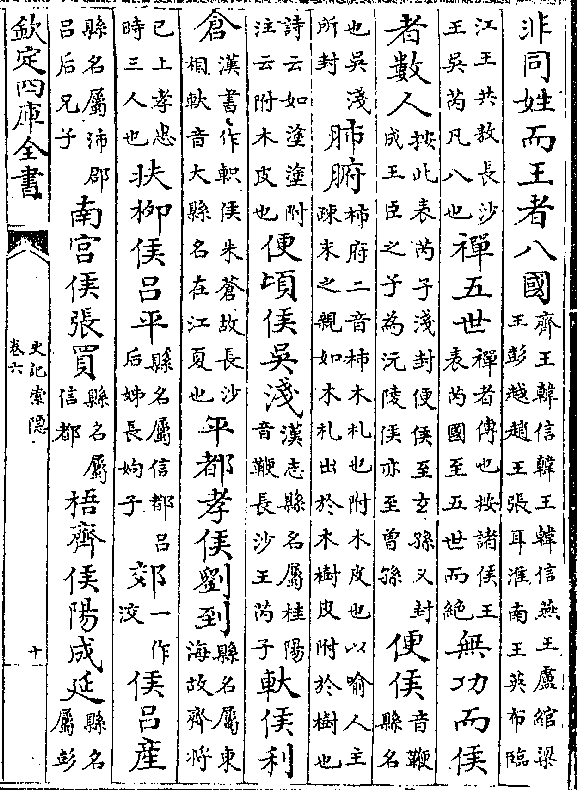 非同姓而王者八國齊王韓信韓王韓信燕王盧綰梁王彭越趙王張耳淮南王英布臨
江王共敖長沙王吳芮凡八也禪五世禪者傳也按諸侯王表芮國至五世而絶無功而侯
者數人按此表芮子淺封便侯至玄孫又封成王臣之子為沅陵侯亦至曾孫便侯音鞭縣名
也吳淺所封肺腑柿府二音柿木札也附木皮也以喻人主疎末之親如木札出於木樹皮附於樹也
詩云如塗塗附注云附木皮也便頃侯吳淺漢志縣名屬桂陽音鞭長沙王芮子軑侯利
倉漢書作軹侯朱蒼故長沙相軑音大縣名在江夏也平都孝侯劉到縣名屬東海故齊將
已上孝惠時三人也扶柳侯呂平縣名屬信都呂后姊長姁子郊一作洨侯呂產
縣名屬沛郡呂后兄子南宮侯張買縣名屬信都梧齊侯陽成延縣名屬彭
欽定四庫全書
史記索隱
卷六
十